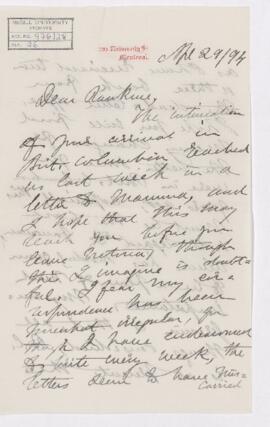 McGILL UNIVERSITY
ARCHIVES
ACC. NO.
REF. 36
University St
Montreal.
Apl 29/94
Dear Rankine,
The intimation
of your arrival in
Brit. Columbia reached
us last week in a
letter to Mamma, and
I hope that this may
reach you before you
leave Victoria, though
this I imagine is doubt-
ful. I fear my cor-
respondence has been
somewhat irregular, for
though I have endeavoured
to write every week, the
letters seem to have mis-
carried